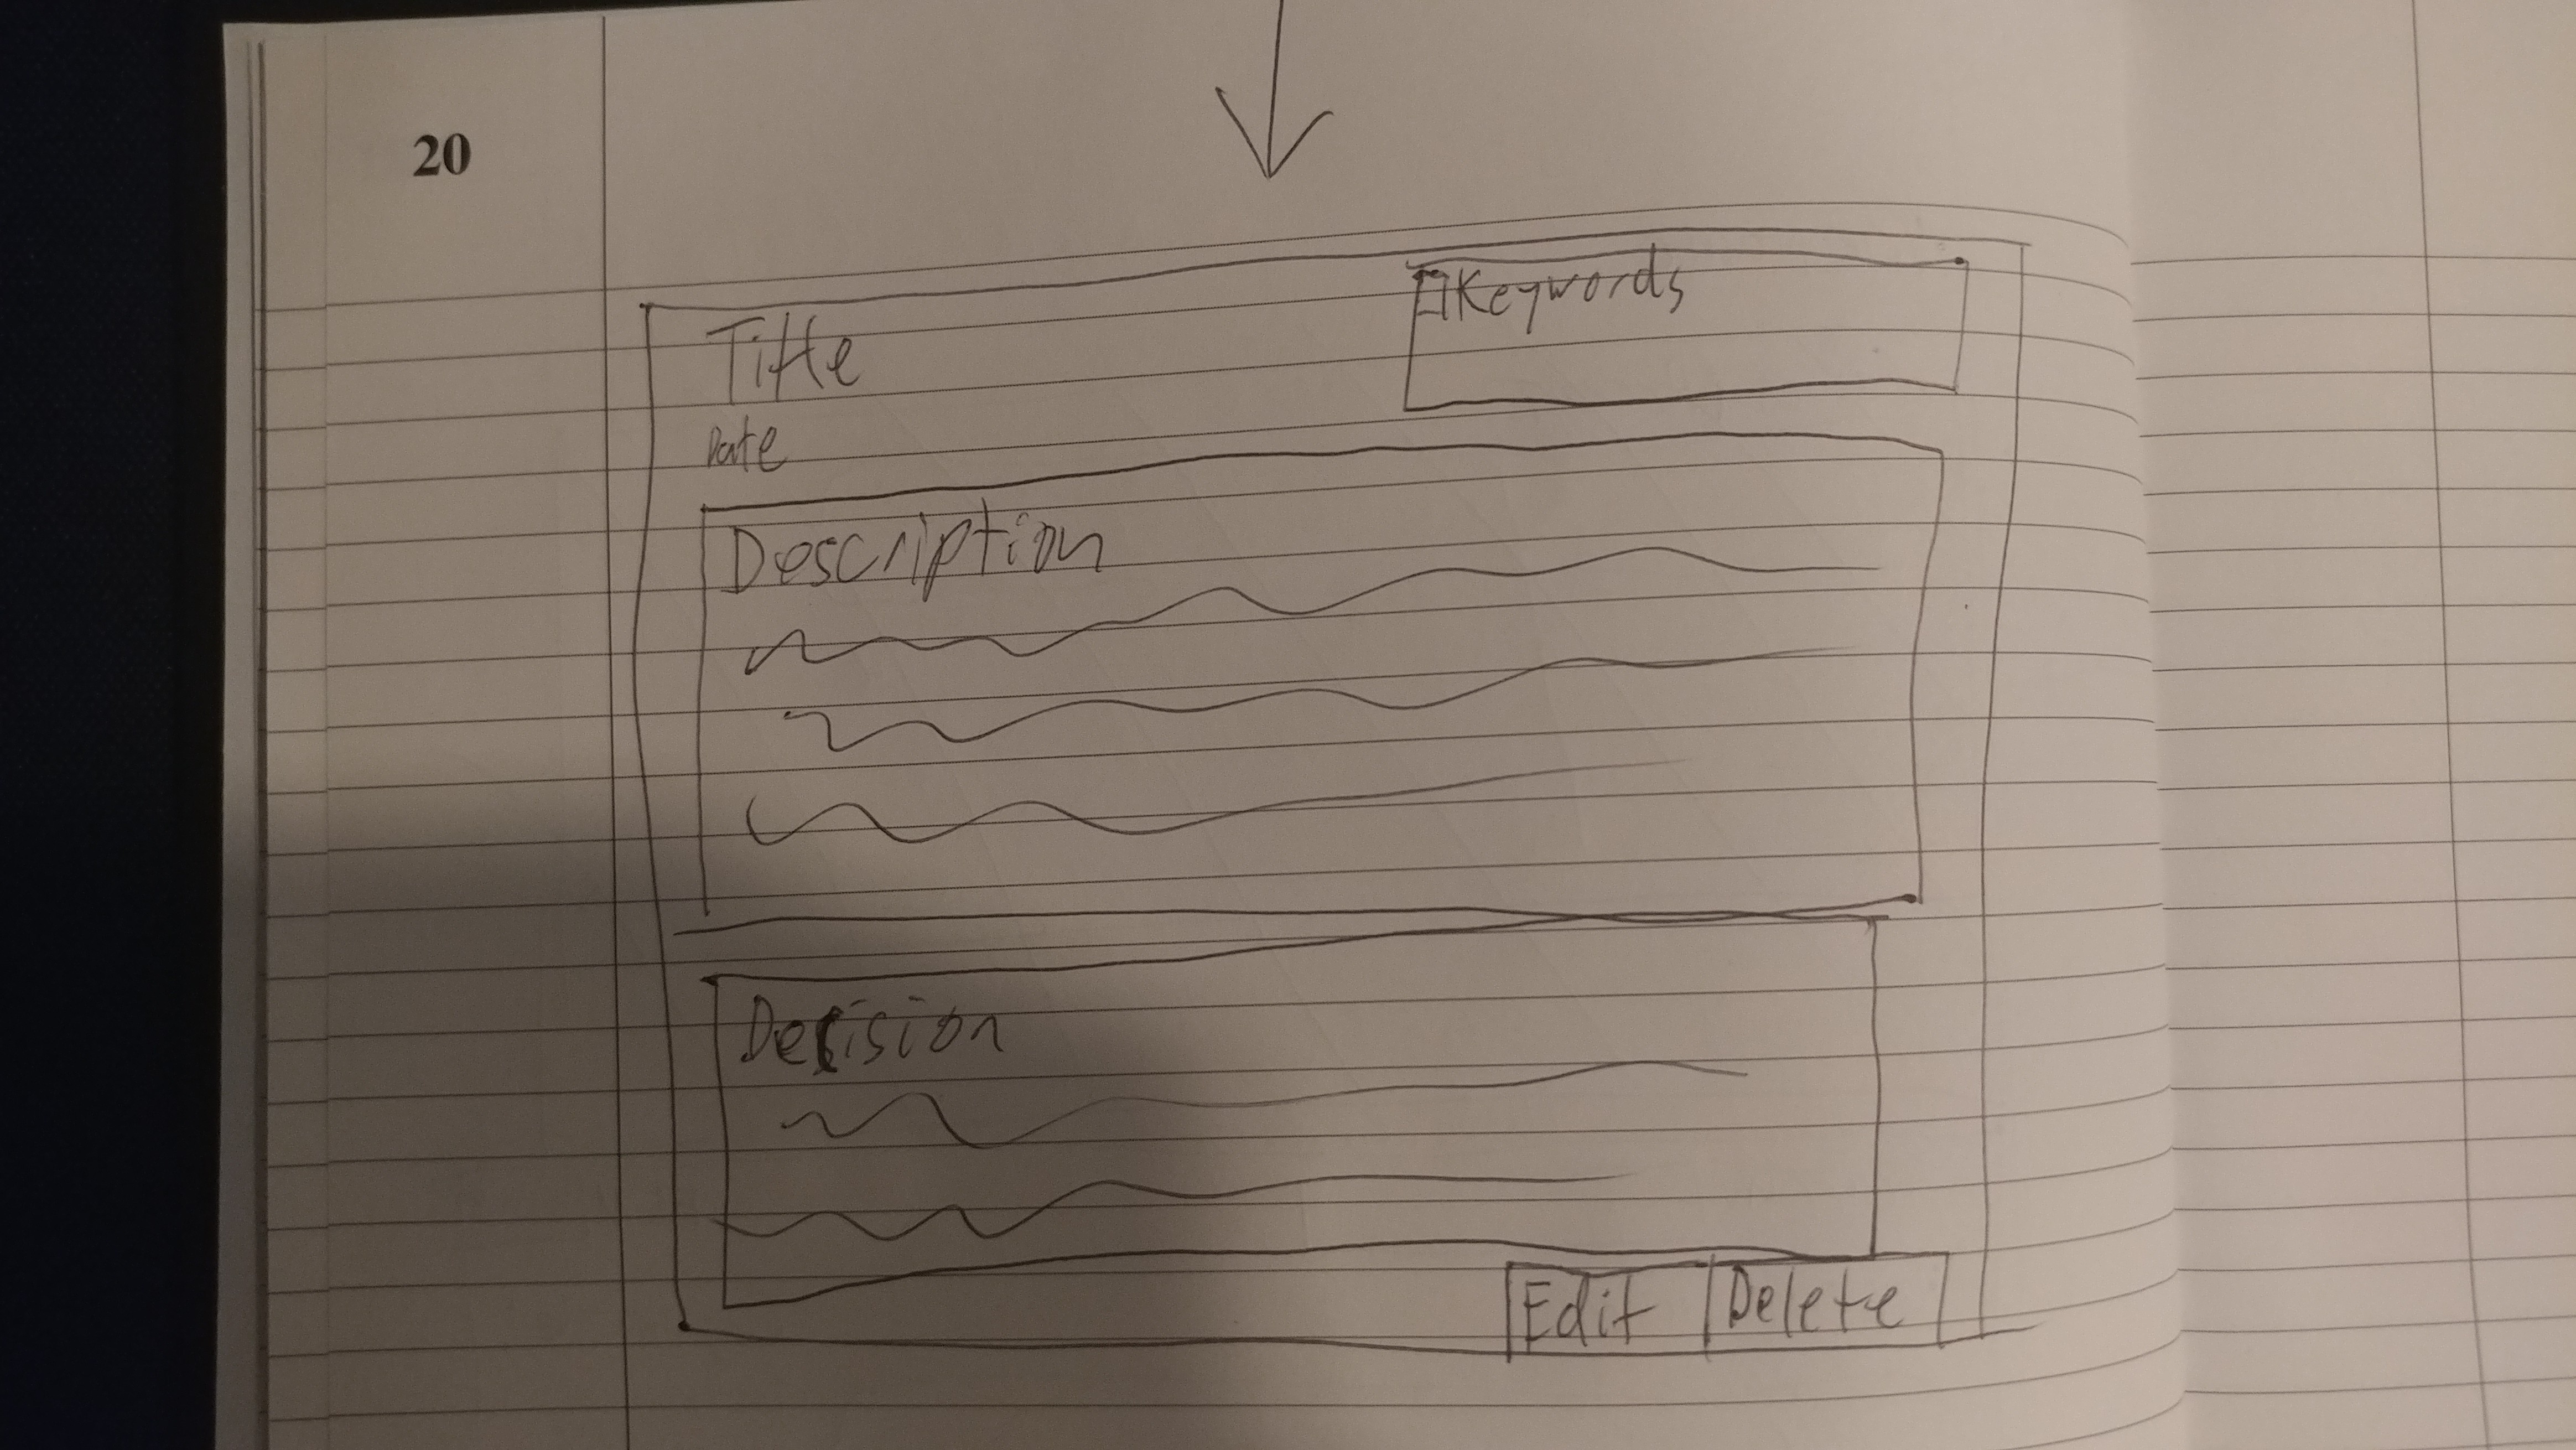 20
Title
Keywords
Date
Description
Decision
Edit Delete